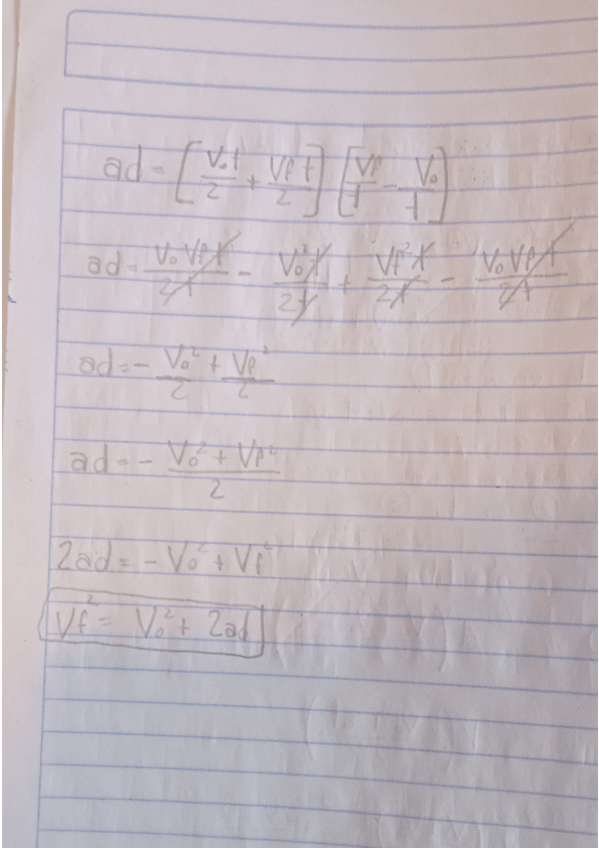 ad = [V₀t/2 + Vf t/2] [Vf/t - V₀/t]
ad = V₀Vf t/2t - V₀²t/2t + Vf²t/2t - V₀Vf t/2t
ad = - V₀²/2 + Vf²/2
ad = - V₀² + Vf²/2
2ad = - V₀² + Vf²
Vf² = V₀² + 2ad